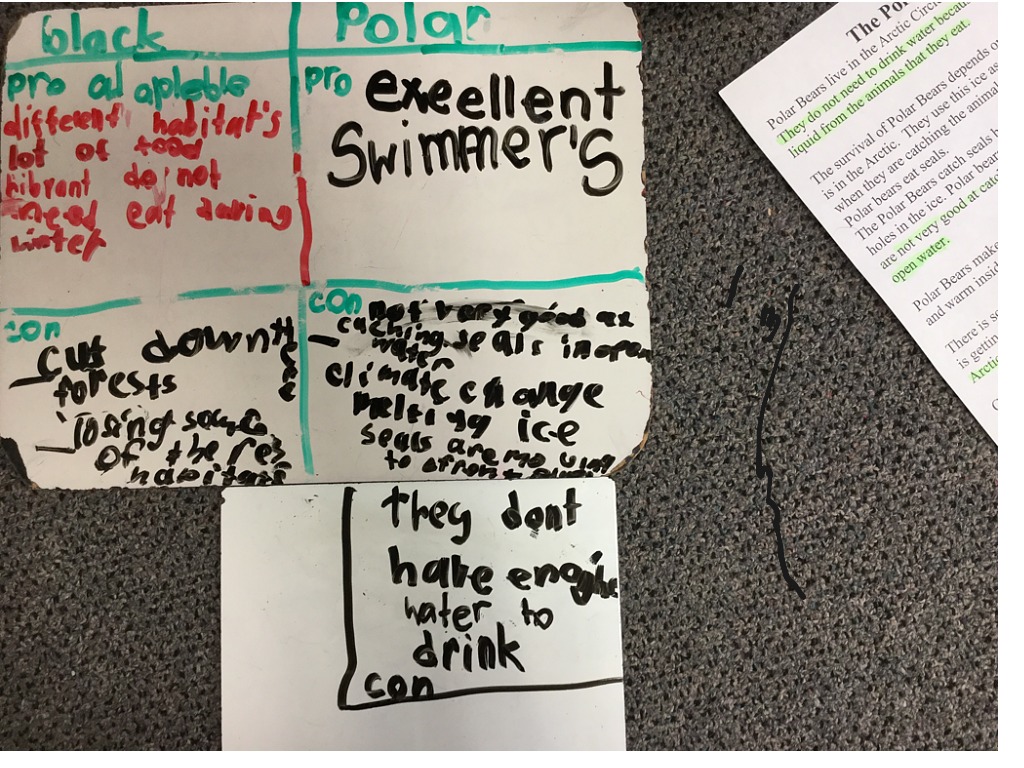 black
pro adaptable
different habitat's
lot of food
hibrant do not
need eat during
winter
Polar
pro
exeellent
Swimmer's
con
cut down
forests
losing
of the
con
not very good at
caching seals in open
water
climate change
melting ice
seals are moving
to
They dont
have
water to
drink
con
The
Polar Bears live in the Arctic
They do not need to drink water
liquid from the animals that they eat.
The survival of Polar Bears depends
is in the Arctic. They use this ice as
when they are catching the animal
Polar bears eat seals.
The Polar Bears catch seals
holes in the ice. Polar
are not very good at
open water.
Polar Bears make
and warm
There is
is